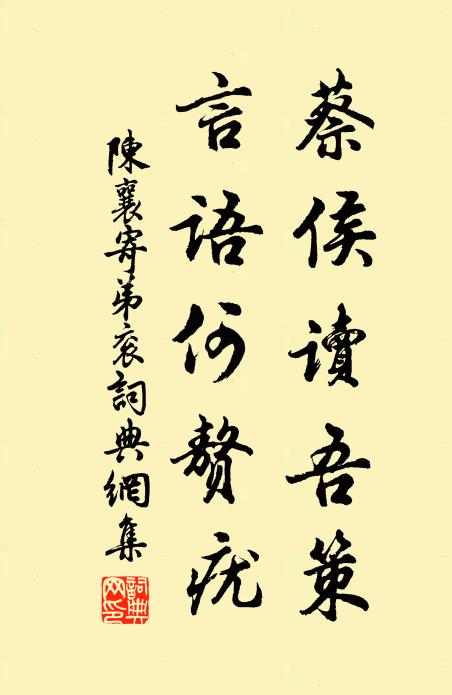 蔡侯讀吾策
言語何贅疣
陳襄寄弟衮詞典網集
詞典網印